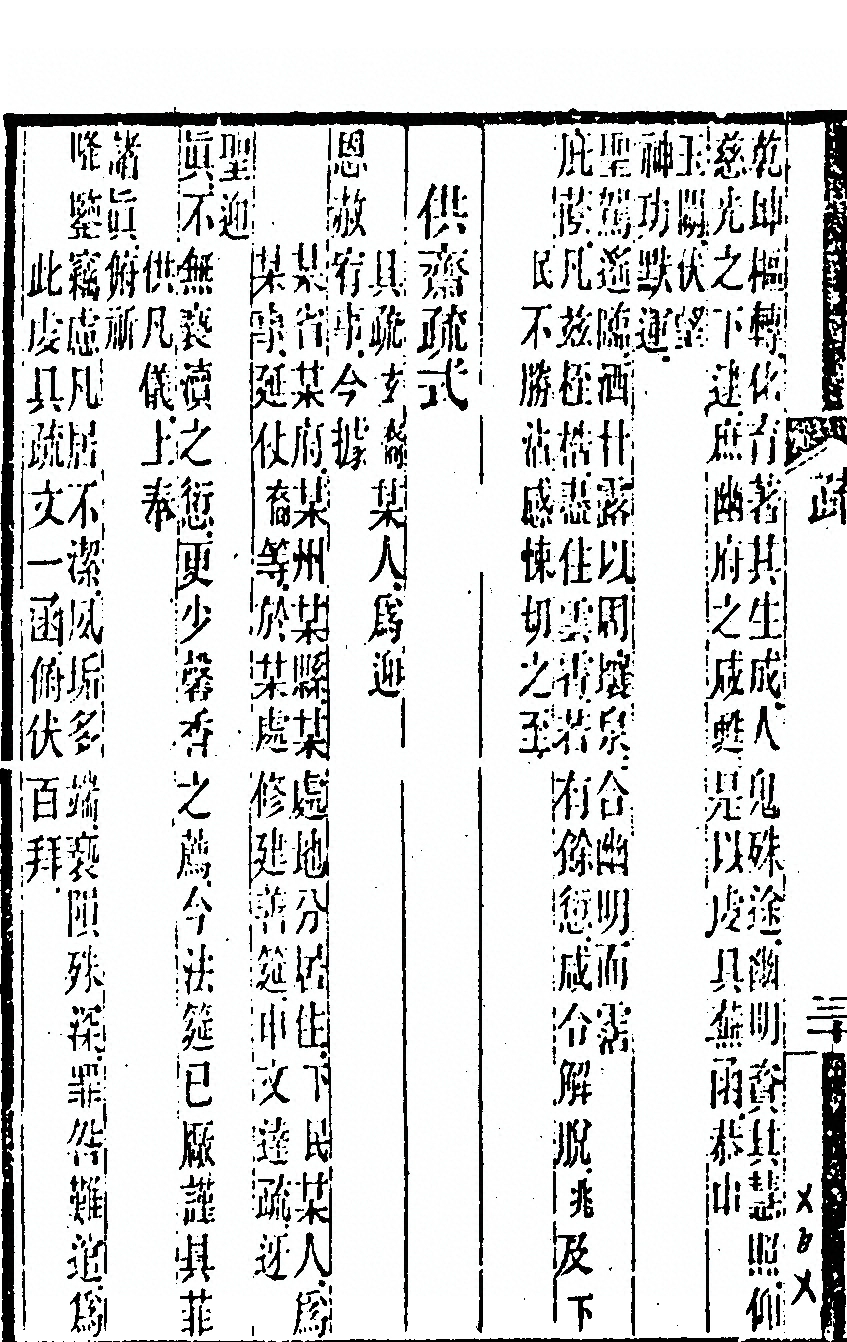 疏
三十
乾坤樞轉化育著其生成人鬼殊途幽明資其慧照仰
慈光之下逮庶幽府之咸甦是以虔具蕪函恭申
玉闕伏望
神功默運
聖駕遙臨洒甘露以周壤泉合幽明而霑
庇蔭凡兹桎梏悉住雲霄若有餘愆咸令解脫兆及下
民不勝沾感悚切之至
供齋疏式
具疏玄裔某人爲迎
恩赦宥事今據
某省某府某州某縣某處地分居住下民某人爲
某事延仗裔等於某處修建善筵申文達疏迓
聖迎
眞不無褻瀆之愆更少馨香之薦今法筵已厰謹具菲
供凡儀上奉
諸眞俯祈
隆鑒竊慮凡居不潔夙垢多端褻隕殊深罪咎難逭爲
此虔具疏文一函俯伏百拜